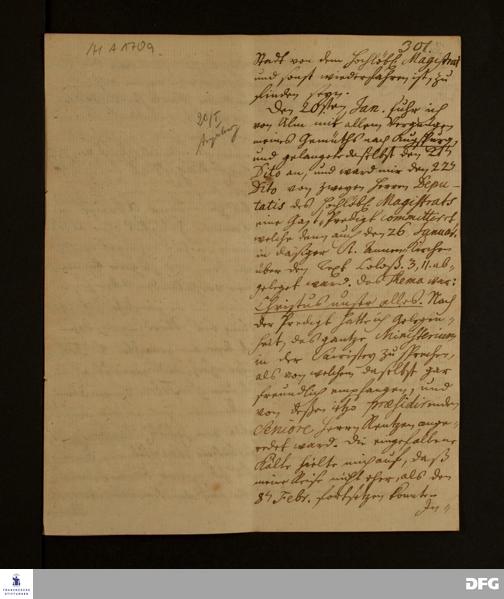 H A 170g.
301.
20/I
Augsburg
Stadt von dem Hochlöbl. Magistrat
und sonst wiederfahren ist, zu
finden seyn.
Den 20sten Jan. fuhr ich
von Ulm mit allem Vergnügen
meines Gemüths nach Augspurg,
und gelangete daselbst den 21ten
Dito an, und ward mir den 22ten
Dito von zweyen Herren Depu-
tatis des Hochlöbl. Magistrats
eine Gast-Predigt committiret
welche denn auch den 26. Januar.
in dasiger St. Annen Kirchen
über den Text Coloss. 3, 11. ab-
geleget ward. Das Thema war:
Christus unser alles. Nach
der Predigt hatte ich Gelegen-
heit, das gantze Ministerium
in der Sacristey zu sprechen,
als von welchen daselbst gar
freundlich empfangen, und
von dessen itzo præsidirenden
Seniore, Herrn ange-
redet ward. Die eingefallene
Kälte hielte mich auf, daß
meine Reise nicht eher, als den
8ten Febr. fortsetzen konte.
In-
FRANCKESCHE
STIFTUNGEN
DFG